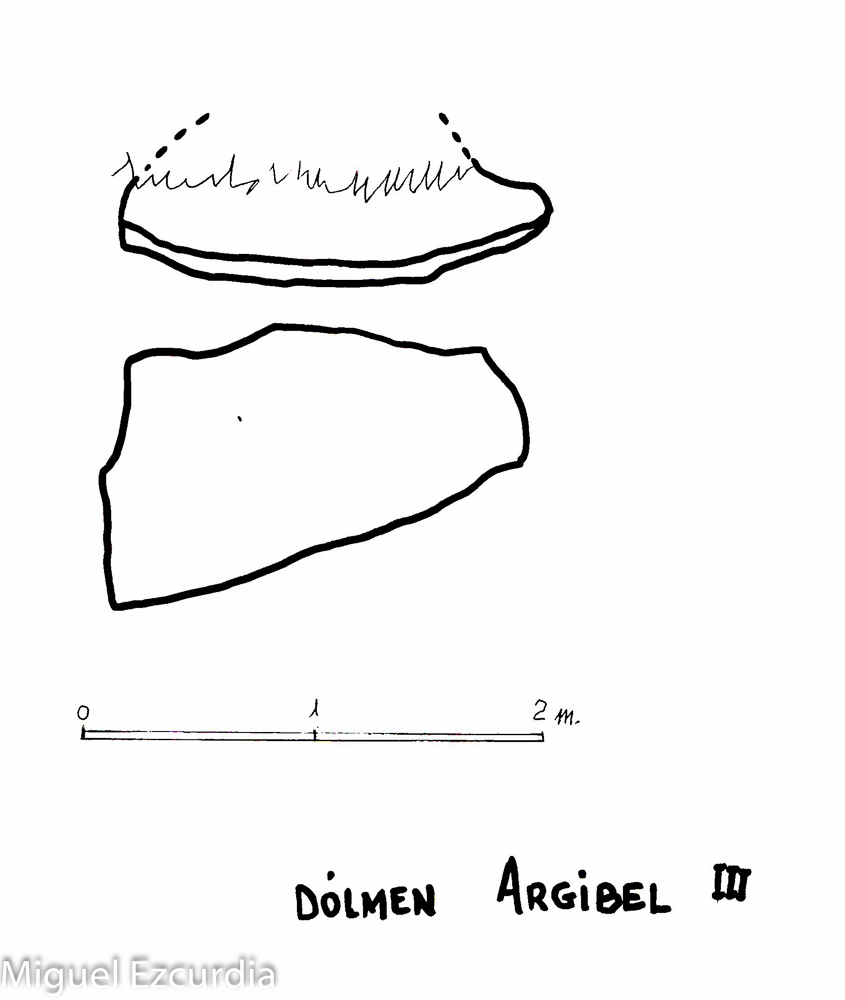 0 1 2 m.
DÓLMEN ARGIBEL III
Miguel Ezcurdia